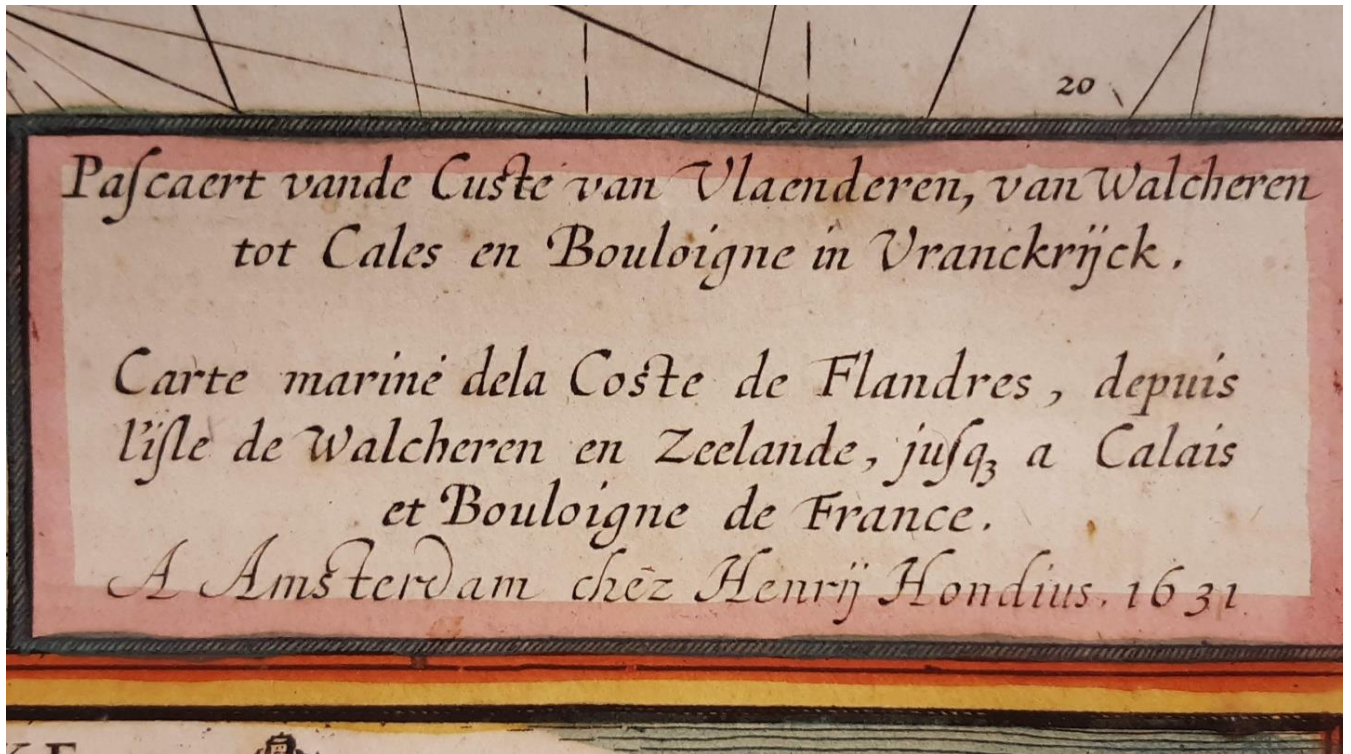 20
Paſcaert vande Cuſte van Vlaenderen, van Walcheren
tot Cales en Bouloigne in Vranckrijck.
Carte marine dela Coſte de Flandres, depuis
l'iſle de Walcheren en Zeelande, juſqꝫ a Calais
et Bouloigne de France.
A Amſterdam chez Henrij Hondius. 1631